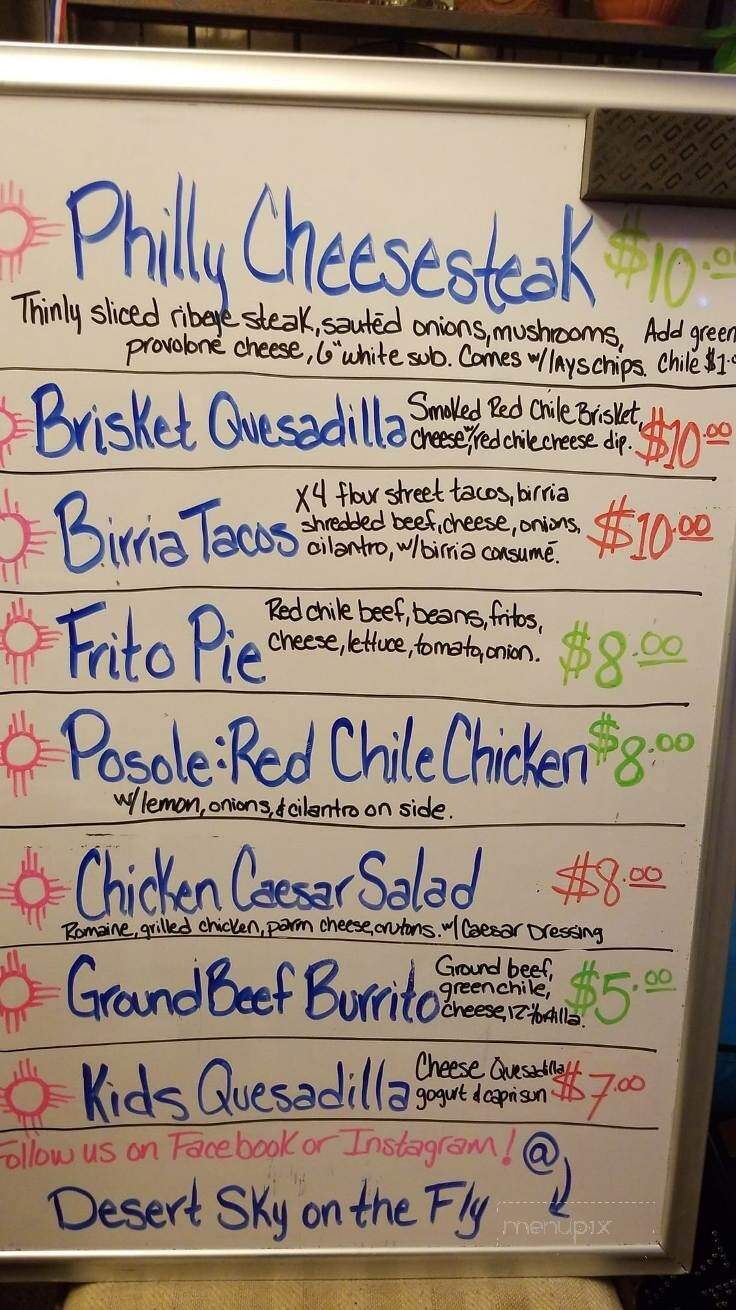 Philly Cheesesteak $10.00
Thinly sliced ribeye steak, sautēd onions, mushrooms, Add green
provolone cheese, 6" white sub. Comes w/lays chips. Chile $1.
Brisket Quesadilla Smoked Red Chile Brisket, $10.00
cheese, w/red chile cheese dip.
Birria Tacos X4 flour street tacos, birria $10.00
shredded beef, cheese, onions,
cilantro, w/birria consumē.
Frito Pie Red chile beef, beans, fritos, $8.00
cheese, lettuce, tomato, onion.
Posole: Red Chile Chicken $8.00
w/lemon, onions, & cilantro on side.
Chicken Caesar Salad $8.00
Romaine, grilled chicken, parm cheese, crutons. w/ Caesar Dressing
Ground Beef Burrito Ground beef, $5.00
green chile,
cheese, 12" tortilla.
Kids Quesadilla Cheese Quesadilla $7.00
yogurt & caprisun
Follow us on Facebook or Instagram! @
Desert Sky on the Fly
menupix